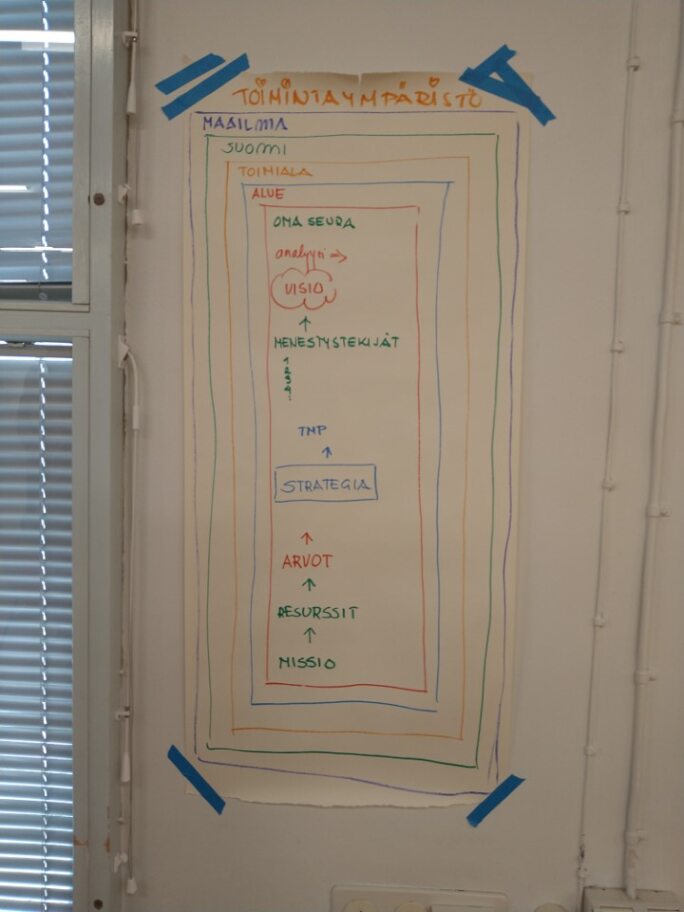 TOIMINTAYMPÄRISTÖ
MAAILMA
SUOMI
TOIMIALA
ALUE
OMA SEURA
analyysi →
VISIO
↑
MENESTYSTEKIJÄT
1
2
3
4
:
TMP
↑
STRATEGIA
↑
ARVOT
↑
RESURSSIT
↑
MISSIO